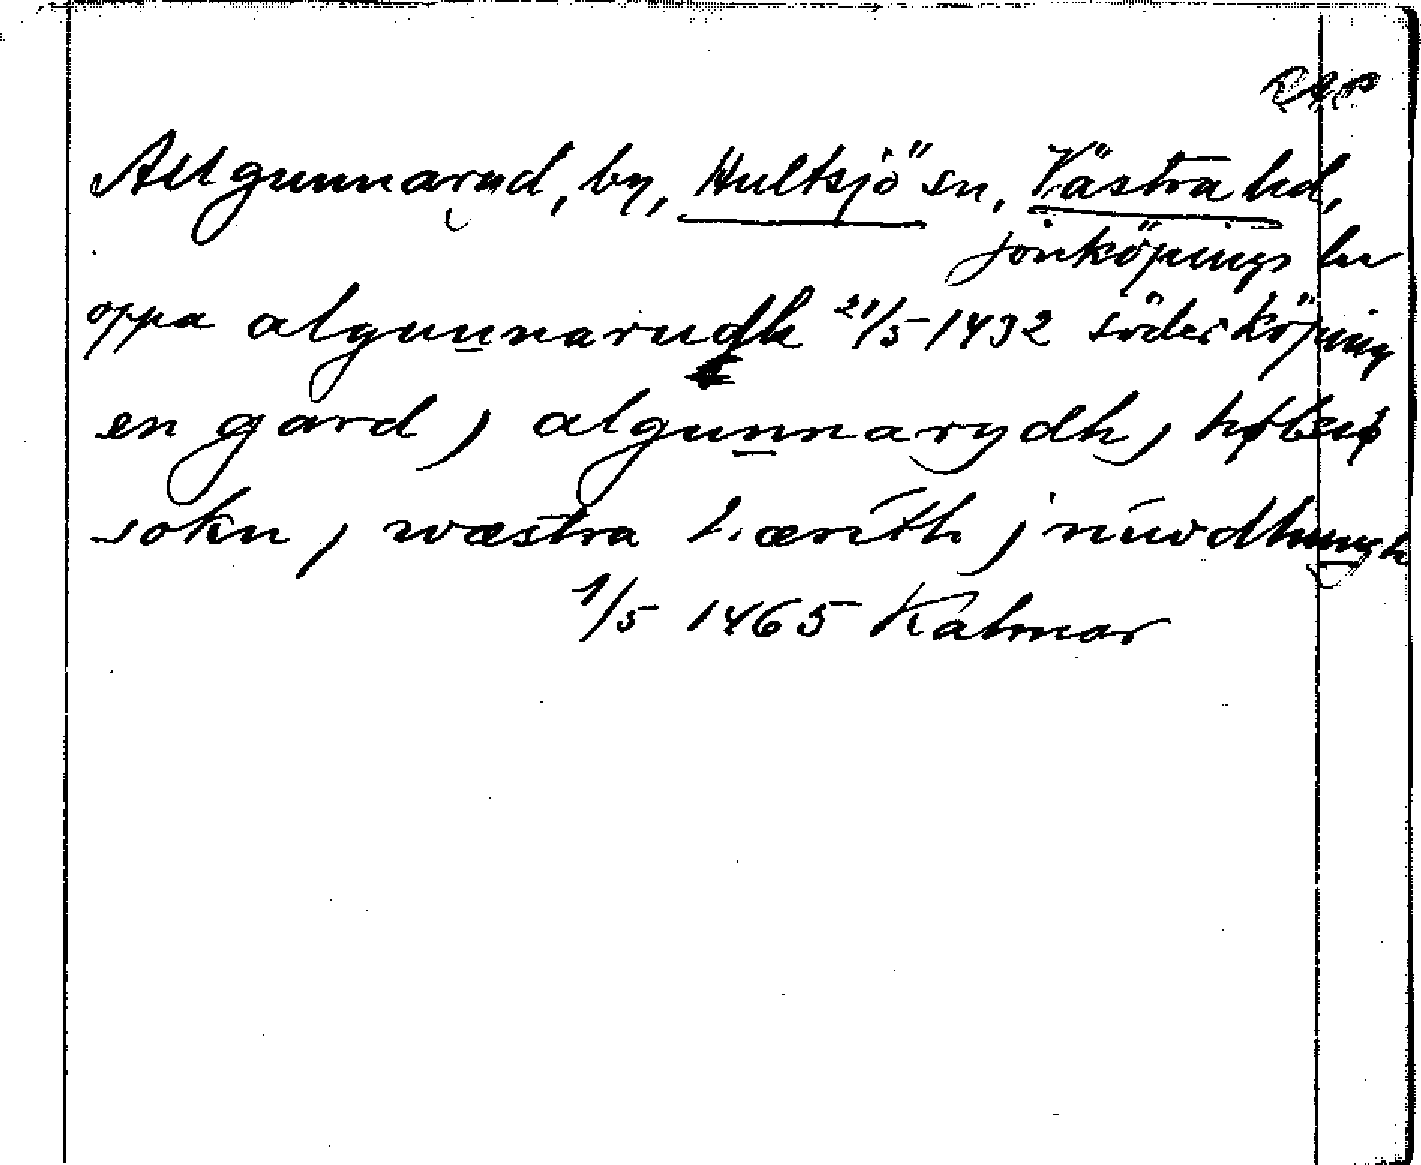 RAP
Allgunnaryd, by, Hultsjö sn, Västra hd,
Jönköpings län
oppa algunnarudh 21/5 1432 Söderköping
en gard j algunnarydh j
sokn j wæstra hæarith j niwdhungh
1/5 1465 Kalmar